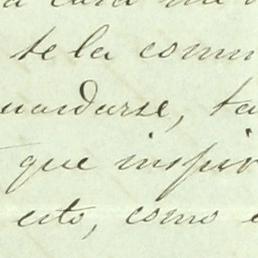 a cara
te la comu
uardarse, ta
que inspir
esto, como e